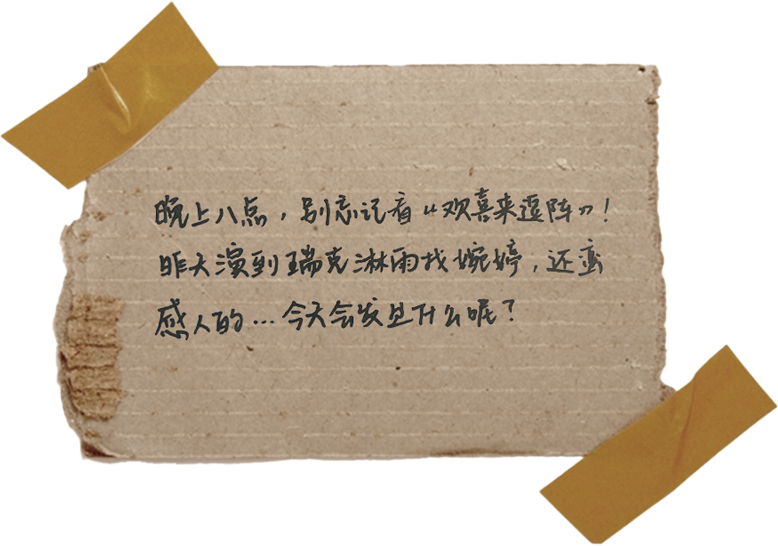 晚上八点，别忘记看《欢喜来逗阵》！
昨天演到瑞克淋雨找婉婷，还蛮
感人的…今天会发生什么呢？